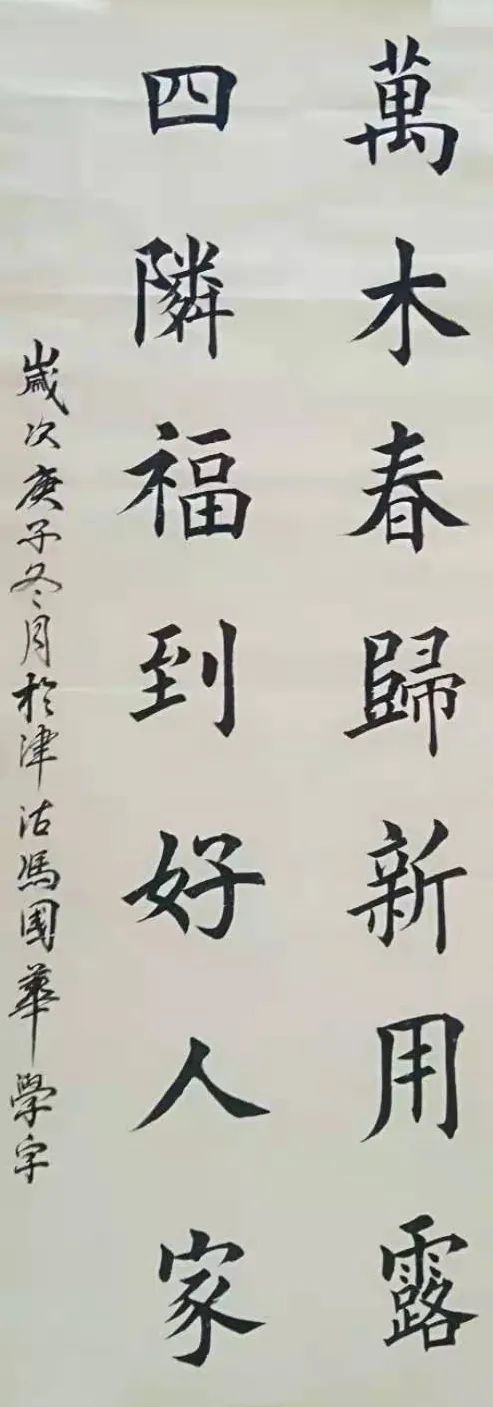 萬木春歸新用露
四隣福到好人家
歲次庚子冬月於津沽馮國華學字